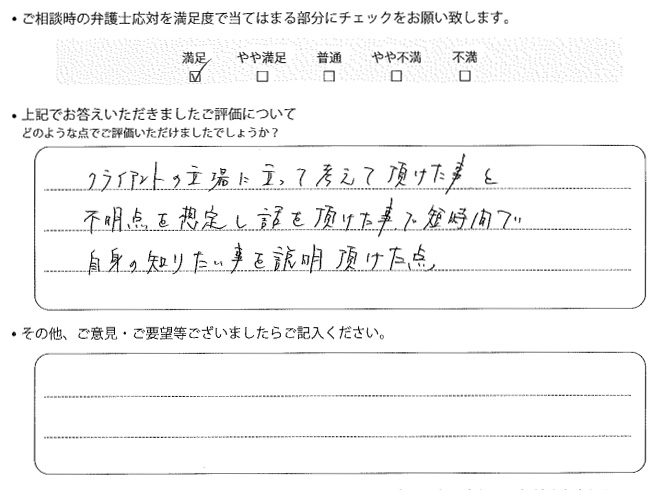 ・ご相談時の弁護士応対を満足度で当てはまる部分にチェックをお願い致します。
満足 やや満足 普通 やや不満 不満
☑ □ □ □ □
・上記でお答えいただきましたご評価について
どのような点でご評価いただけましたでしょうか？
クライアントの立場に立って考えて頂けた事と
不明点を想定し話を頂けた事で短時間で
自身の知りたい事を説明頂けた点。
・その他、ご意見・ご要望等ございましたらご記入ください。